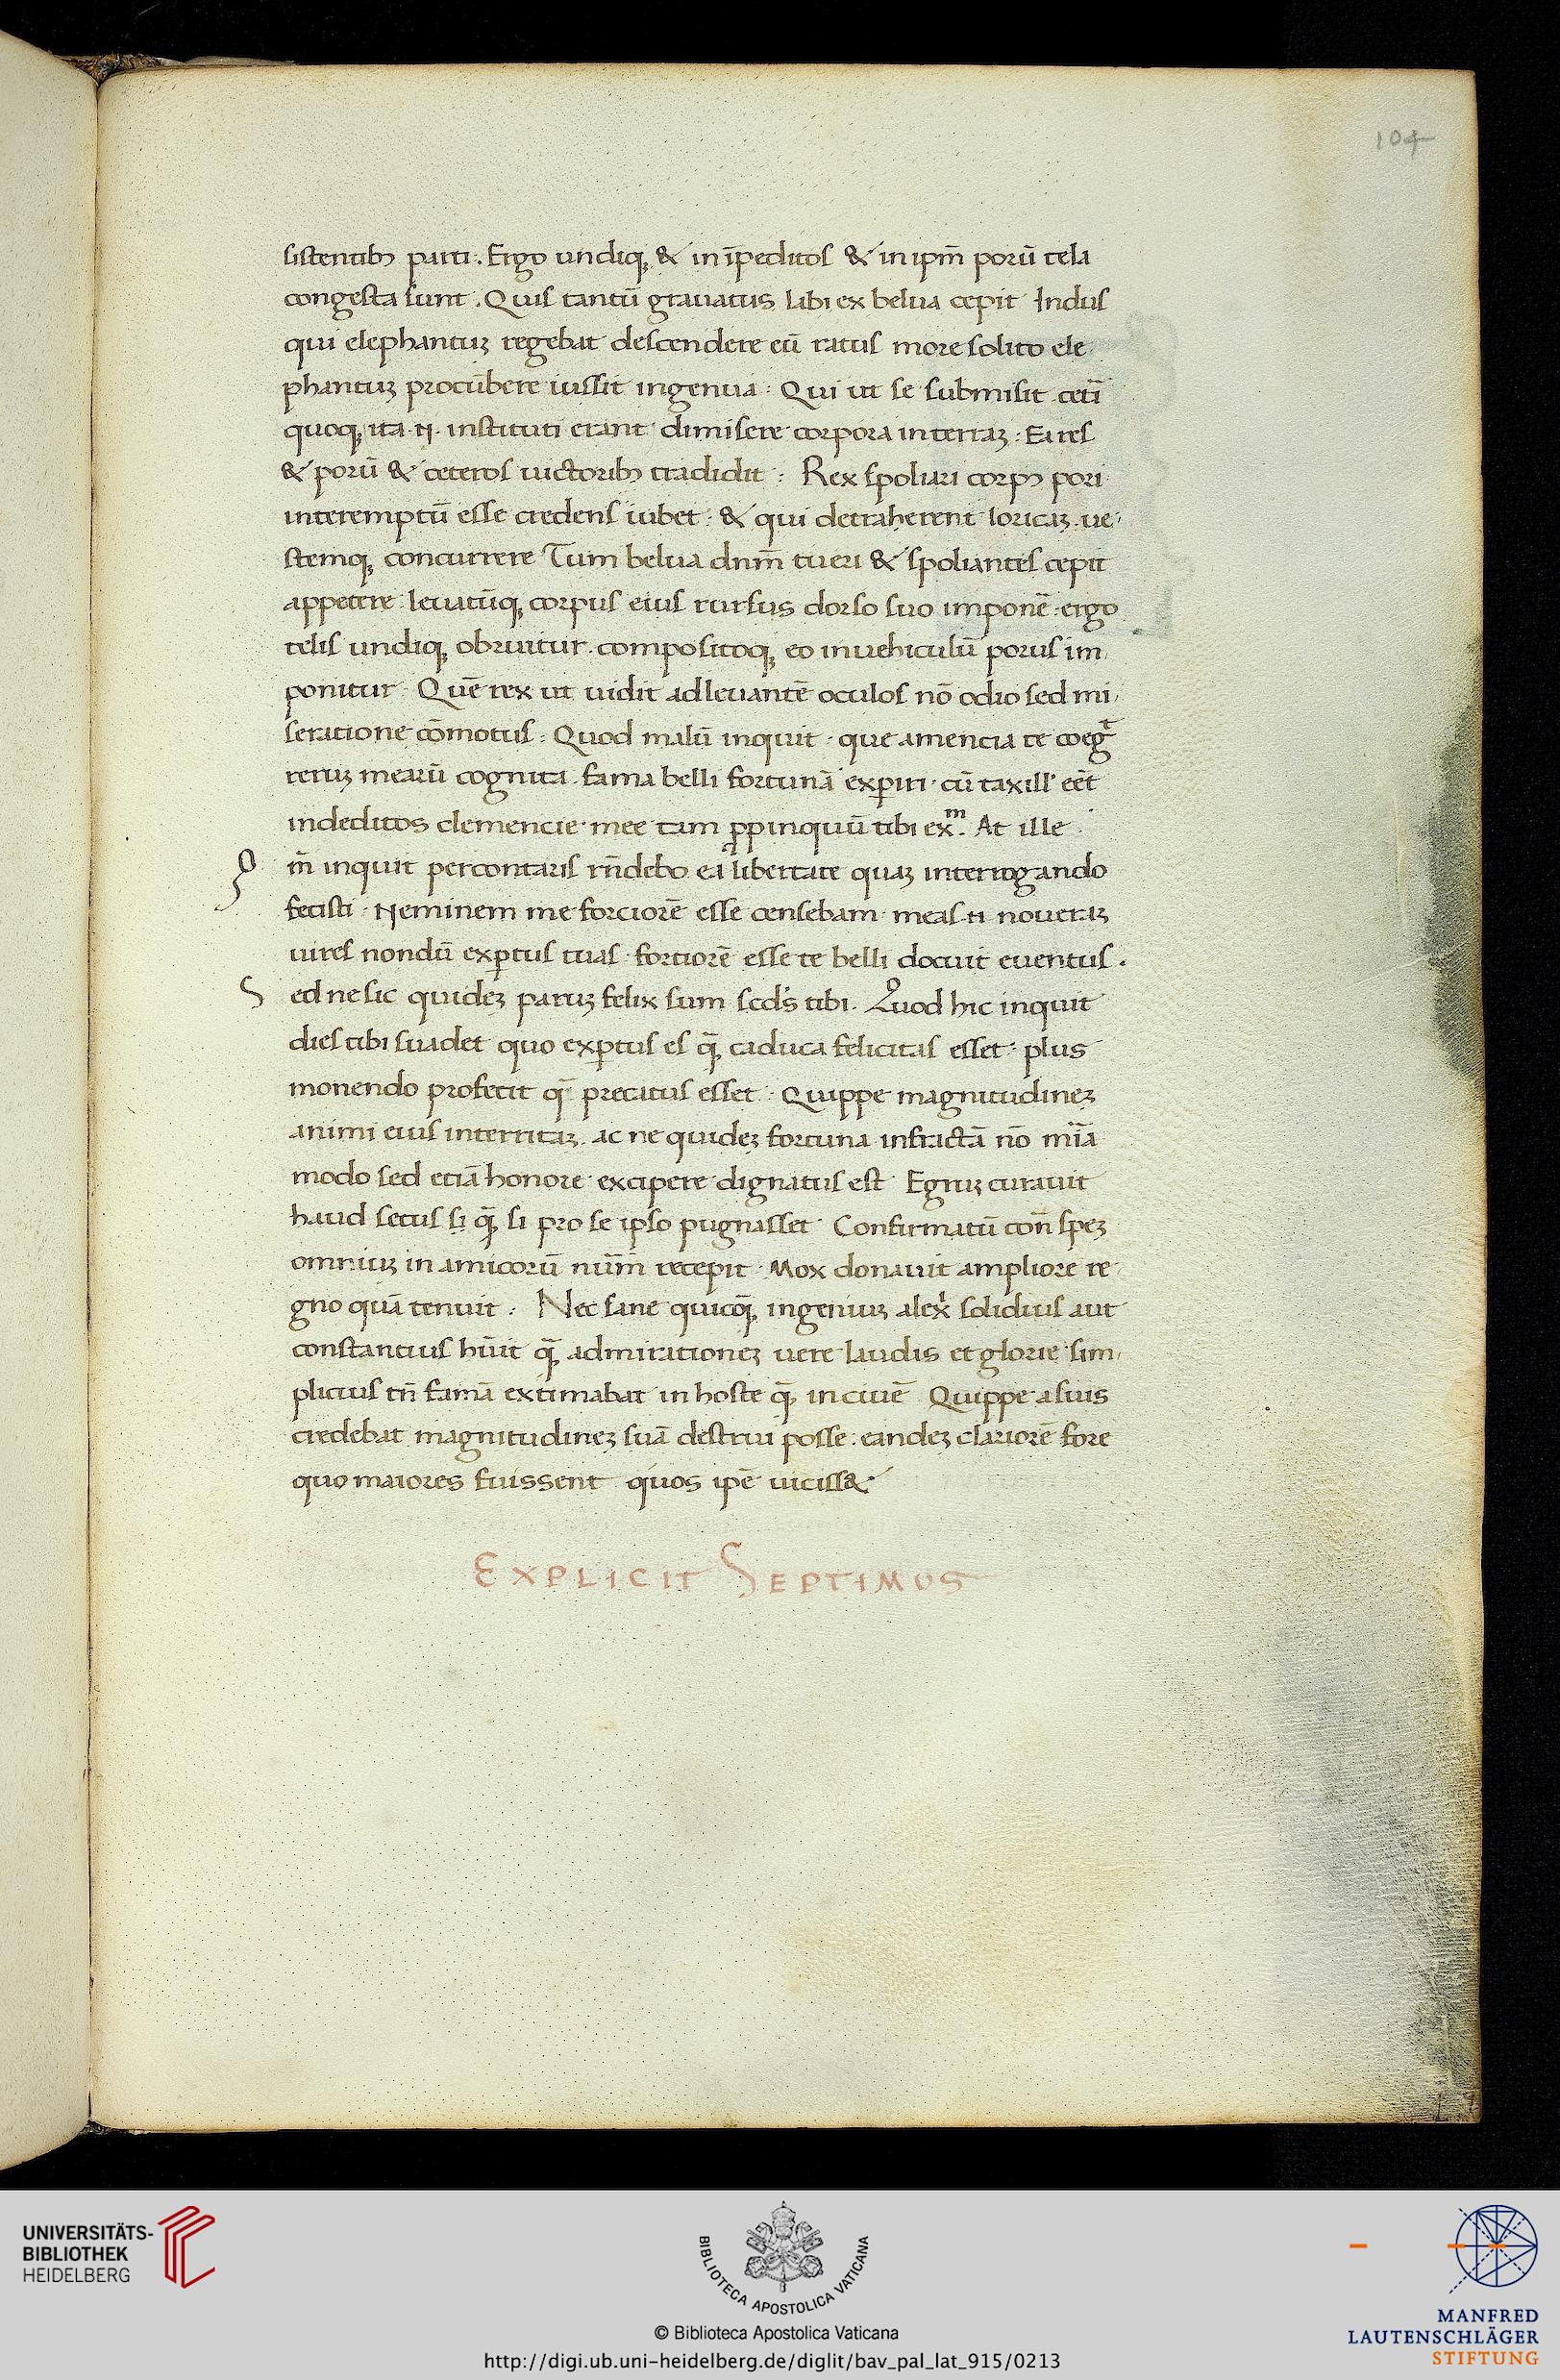 104
sistentibꝫ parti. Ergo undiqꝫ & in īpeditos & in ipm̄ porū tela
congesta sunt. Quis tantū grauatus labi ex belua cepit Indus
qui elephantuꝫ regebat descendere eū ratus more solito ele
phantuꝫ procūbere iussit ingenua: Qui ut se submisit cet̄i
quoqꝫ ita .n. instituti erant dimisere corpora in terraꝫ: Ea res
& porū & ceteros uictoribꝫ tradidit: Rex spoliari corpꝰ pori
interemptū esse credens iubet: & qui detraherent loricaꝫ ue
stemqꝫ concurrere Tum belua dn̄m tueri & spoliantes cepit
appetere leuatūqꝫ corpus eius rursus dorso suo imponē. ergo
telis undiqꝫ obruitur. compositoqꝫ eo in uehiculū porus im
ponitur. Quē rex ut uidit adleuantē oculos nō odio sed mi
seratione cōmotus: Quod malū inquit que amencia te coegᵗ
reruꝫ mearū cognita fama belli fortunā exꝑiri cū taxill' eēt
in deditos clemencie mee tam ꝓpinquū tibi exᵐ. At ille
Qm̄ inquit percontaris rn̄debo ea libertate quaꝫ interrogando
fecisti. Neminem me forciorē esse censebam meas .n. noueraꝫ
uires nondū exꝑtus tuas fortiorē esse te belli docuit euentus.
Sed ne sic quideꝫ paruꝫ felix sum scd's tibi. Quod hic inquit
dies tibi suadet quo exꝑtus es qꝫ̄ caduca felicitas esset plus
monendo profecit q̄ precatus esset. Quippe magnitudineꝫ
animi eius interritaꝫ ac ne quideꝫ fortuna infractā nō mīa
modo sed etiā honore excipere dignatus est Egruꝫ curauit
haud secus si qꝫ̄ si pro se ipso pugnasset. Confirmatū con̄ speꝫ
omniuꝫ in amicorū num̄ recepit. Mox donauit ampliore re
gno quā tenuit. Nec sane quicqꝫ̄ ingeniuꝫ alex̓ solidius aut
constantius hūit qꝫ̄ admirationeꝫ uere laudis et glorie sim
plicius tn̄ famā extimabat in hoste qꝫ̄ in ciuē Quippe a suis
credebat magnitudineꝫ suā destrui posse. eandeꝫ clariorē fore
quo maiores fuissent quos ipē uiciss&
EXPLICIT SEPTIMUS
UNIVERSITÄTS-
BIBLIOTHEK
HEIDELBERG
BIBLIOTECA APOSTOLICA VATICANA
© Biblioteca Apostolica Vaticana
http://digi.ub.uni-heidelberg.de/diglit/bav_pal_lat_915/0213
MANFRED
LAUTENSCHLÄGER
STIFTUNG